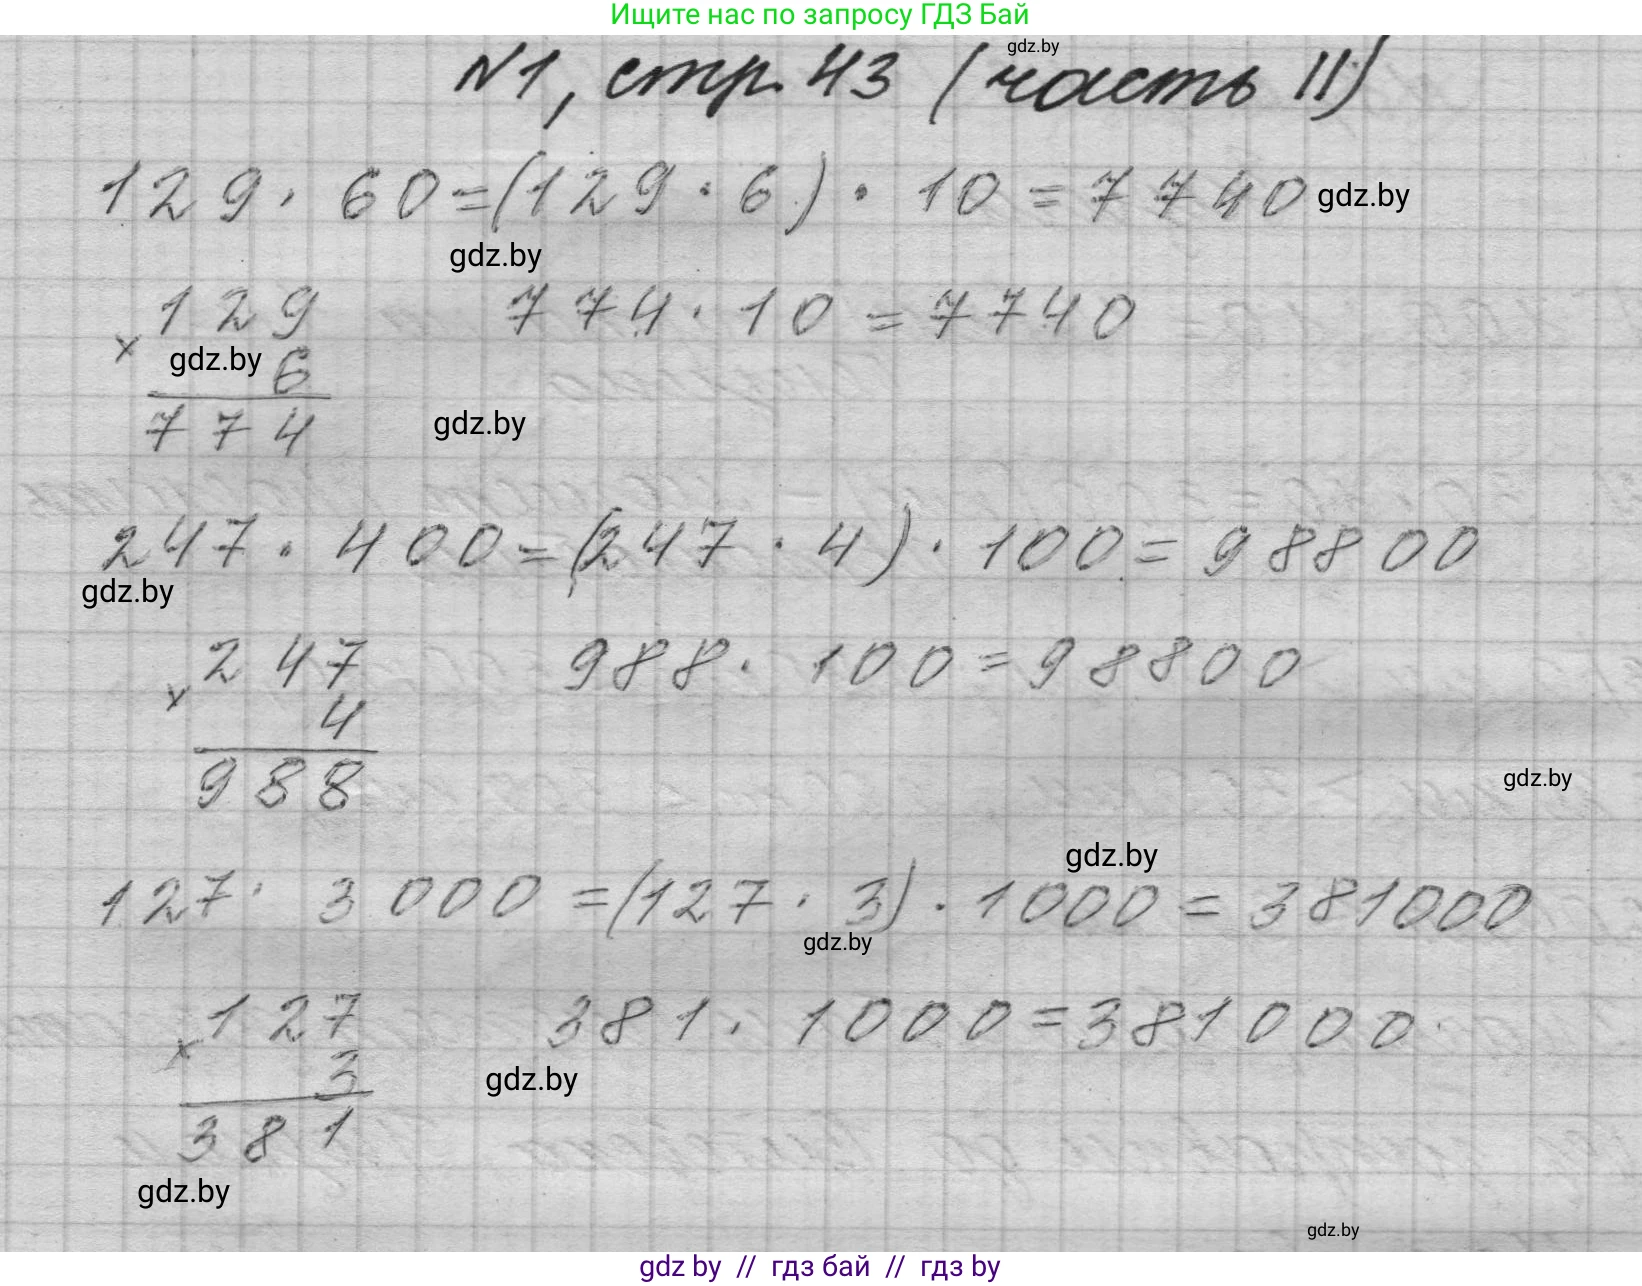 Ищите нас по запросу ГДЗ Бай
gdz.by
№1, стр. 43 (часть II)
129 · 60 = (129 · 6) · 10 = 7740 gdz.by
gdz.by
129 774 · 10 = 7740
×
gdz.by 6
774 gdz.by
247 · 400 = (247 · 4) · 100 = 98800
gdz.by
247 988 · 100 = 98800
×
4
988
gdz.by
gdz.by
127 · 3000 = (127 · 3) · 1000 = 381000
gdz.by
127 381 · 1000 = 381000
×
3
gdz.by
381
gdz.by
gdz.by
gdz by // гдз бай // гдз by